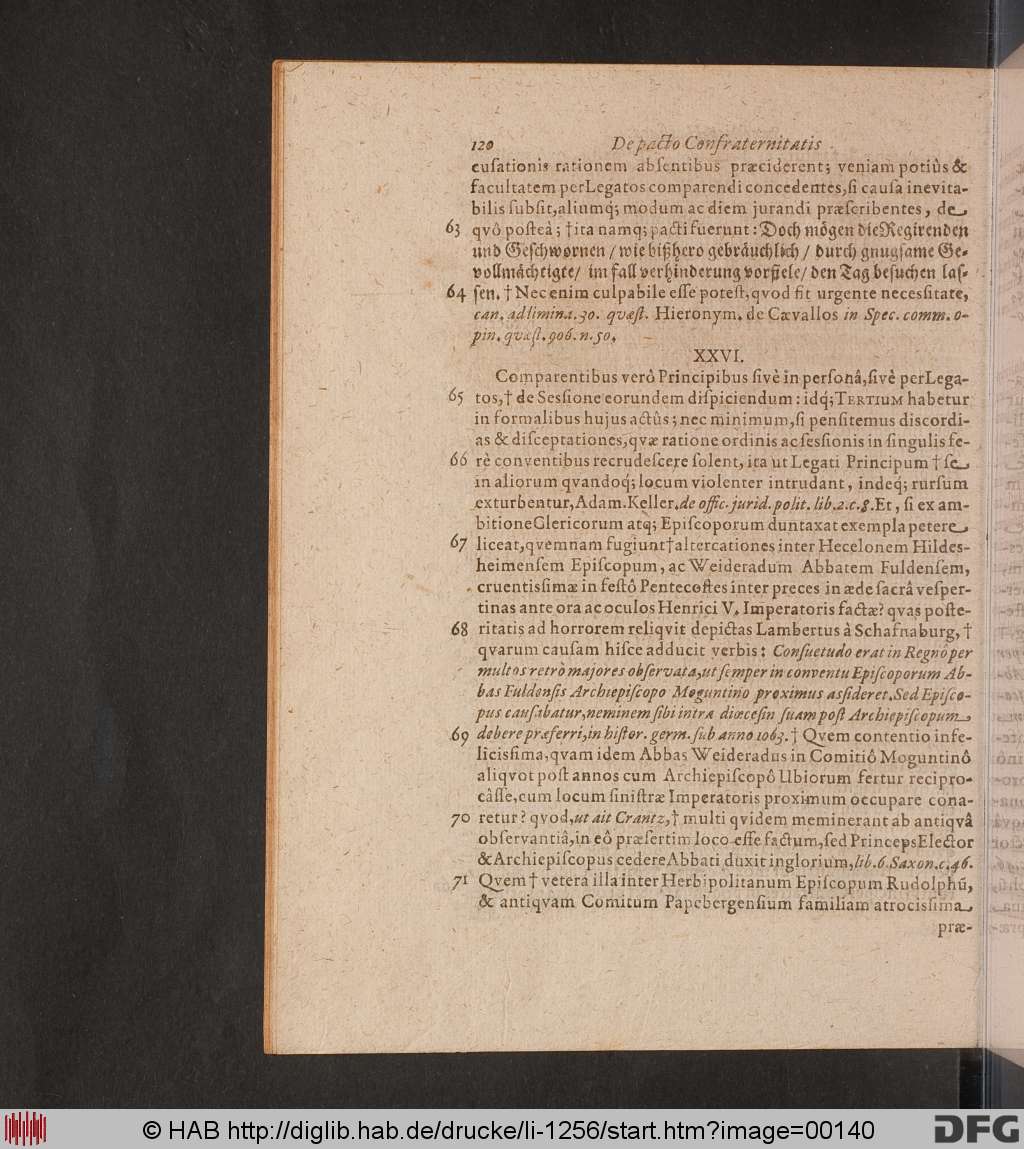 120 De pacto Confraternitatis
cuſationis rationem abſentibus præciderent; veniam potiùs &
facultatem per Legatos comparendi concedentes, ſi cauſa inevita-
bilis ſubſit, aliumq; modum ac diem jurandi præſcribentes, de
63 qvô poſteà; † ita namq; pacti fuerunt: Doch mögen die Regirenden
und Geſchwornen / wie bißhero gebräuchlich / durch gnugſame Ge-
vollmächtigte / im fall verhinderung vorfiele / den Tag beſuchen laſ-
64 ſen. † Nec enim culpabile eſſe poteſt, qvod fit urgente neceſsitate,
can. ad limina. 30. quæſt. Hieronym. de Cævallos in Spec. comm. o-
pin. quæſt. 906. n. 50.
XXVI.
Comparentibus verô Principibus ſivè in perſonâ, ſivè per Lega-
65 tos, † de Sessione eorundem diſpiciendum: idq; TERTIUM habetur
in formalibus hujus actûs; nec minimum, ſi penſitemus discordi-
as & diſceptationes, qvæ ratione ordinis ac ſeſsionis in ſingulis fe-
66 rè conventibus recrudeſcere ſolent, ita ut Legati Principum † ſe
in aliorum qvandoq; locum violenter intrudant, indeq; rurſum
exturbentur, Adam. Keller. de offic. jurid. polit. lib. 2. c. 8. Et, ſi ex am-
bitione Clericorum atq; Epiſcoporum duntaxat exempla petere
67 liceat, qvemnam fugiunt † altercationes inter Hecelonem Hildes-
heimenſem Epiſcopum, ac Weideradum Abbatem Fuldenſem,
cruentiſsimæ in feſtô Pentecoſtes inter preces in æde ſacrâ veſper-
tinas ante ora ac oculos Henrici V. Imperatoris factæ? qvas poſte-
68 ritatis ad horrorem reliqvit depictas Lambertus à Schafnaburg, †
qvarum cauſam hiſce adducit verbis: Conſuetudo erat in Regnô per
multos retrò majores obſervata, ut ſemper in conventu Epiſcoporum Ab-
bas Fuldenſis Archiepiſcopo Moguntino proximus aſsideret. Sed Epiſco-
pus cauſabatur, neminem ſibi intra diœceſin ſuam poſt Archiepiſcopum
69 debere præferri, in hiſtor. germ. ſub anno 1063. † Qvem contentio infe-
liciſsima, qvam idem Abbas Weideradus in Comitiô Moguntinô
aliqvot poſt annos cum Archiepiſcopô Ubiorum fertur recipro-
câſſe, cum locum ſiniſtræ Imperatoris proximum occupare cona-
70 retur? qvod, ut ait Crantz, † multi qvidem meminerant ab antiqvâ
obſervantiâ, in eô præſertim loco eſſe factum, ſed Princeps Elector
& Archiepiſcopus cedere Abbati duxit inglorium, lib. 6. Saxon. c. 46.
71 Qvem † vetera illa inter Herbipolitanum Epiſcopum Rudolphũ,
& antiqvam Comitum Papebergenſium familiam atrociſsima
præ-
© HAB http://diglib.hab.de/drucke/li-1256/start.htm?image=00140
DFG